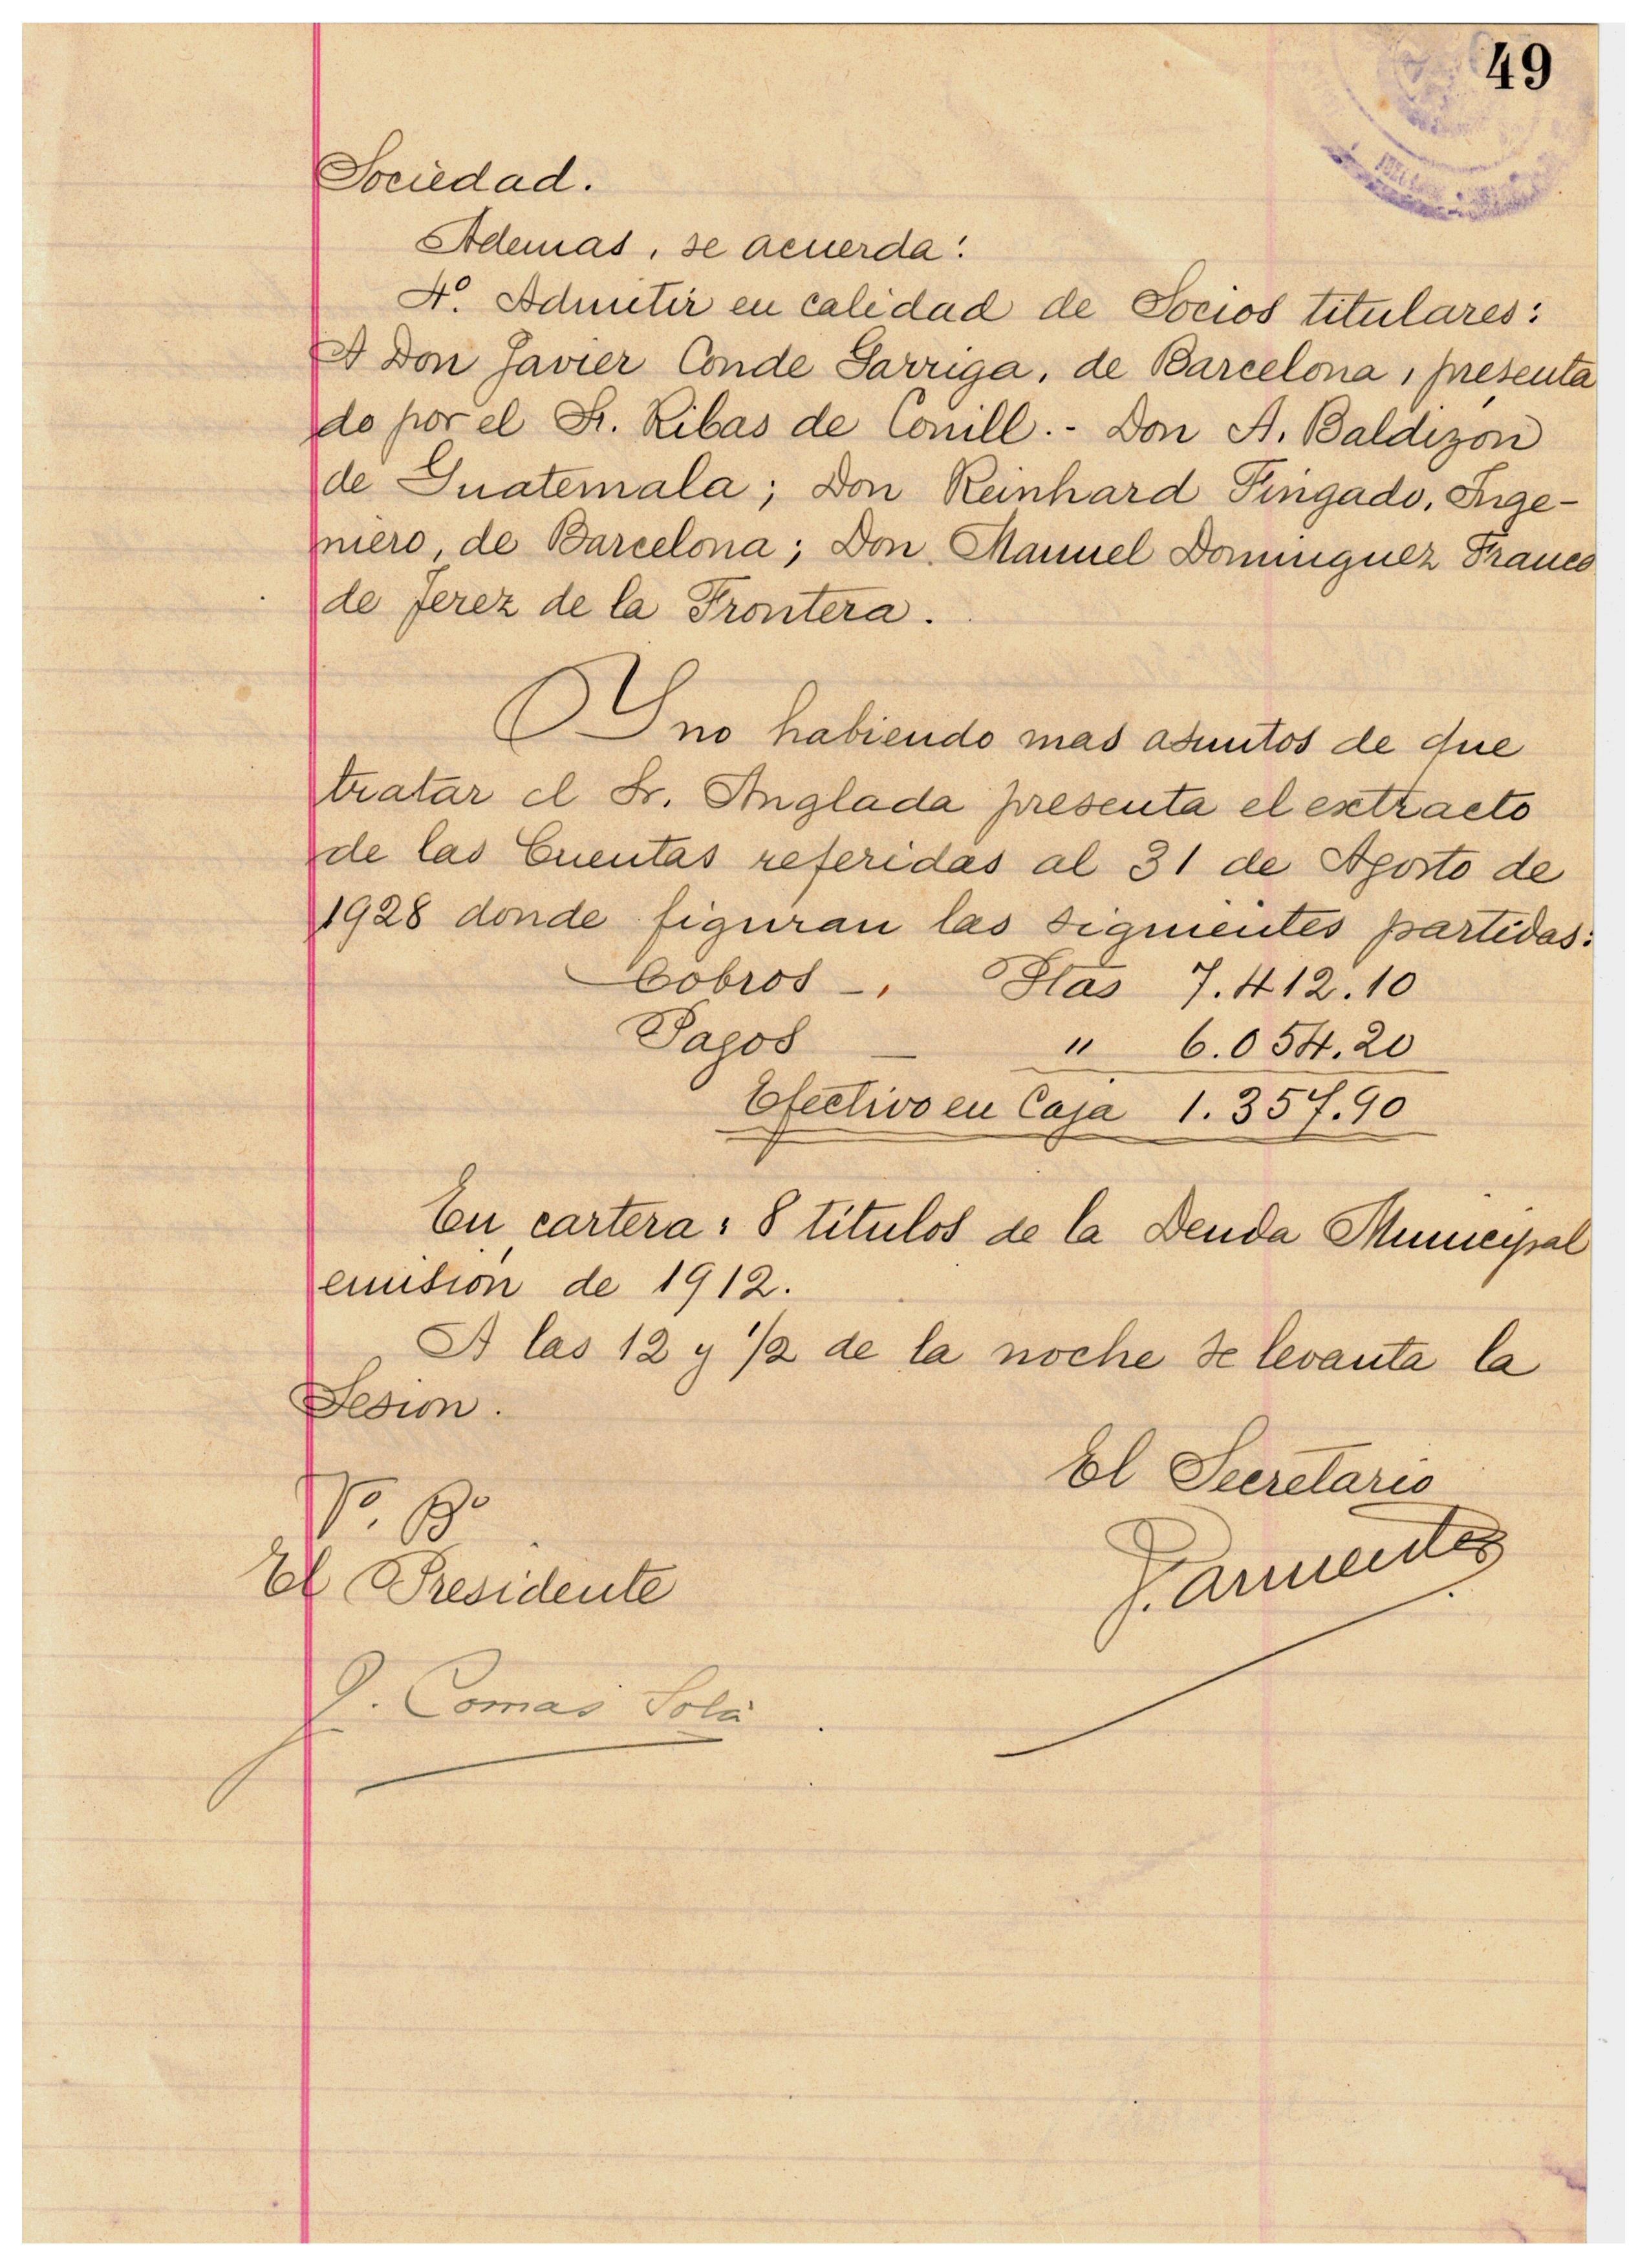 49
Sociedad.
Ademas, se acuerda:
4º. Admitir en calidad de Socios titulares:
A Don Javier Conde Garriga, de Barcelona, presenta
do por el Sr. Ribas de Conill.- Don A. Baldizón
de Guatemala; Don Reinhard Fingado, Inge-
niero, de Barcelona; Don Manuel Dominguez Franco
de Jerez de la Frontera.
Y no habiendo mas asuntos de que
tratar el Sr. Anglada presenta el extracto
de las Cuentas referidas al 31 de Agosto de
1928 donde figuran las siguientes partidas:
Cobros -, Ptas 7.412.10
Pagos — " 6.054.20
Efectivo en Caja 1.357.90
En cartera: 8 titulos de la Deuda Municipal
emisión de 1912.
A las 12 y 1/2 de la noche se levanta la
Sesion.
El Secretario
Vº. Bº
J. Armenter
El Presidente
J. Comas Solá